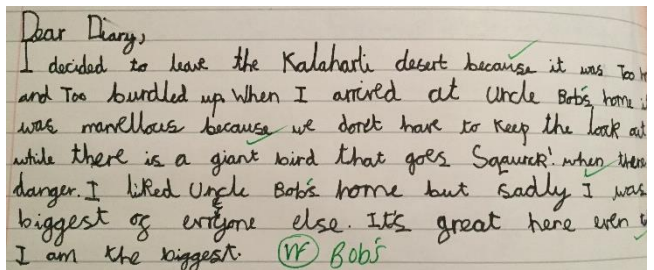 Dear Diary,
I decided to leave the Kalaharli desert because it was Too
and Too burdled up. When I arrived at Uncle Bob's home
was marvellous because we don't have to keep the look out
while there is a giant bird that goes Sqaurck! when there
danger. I liked Uncle Bob's home but sadly I was
biggest of else. It's great here even
I am the biggest. VF Bob's